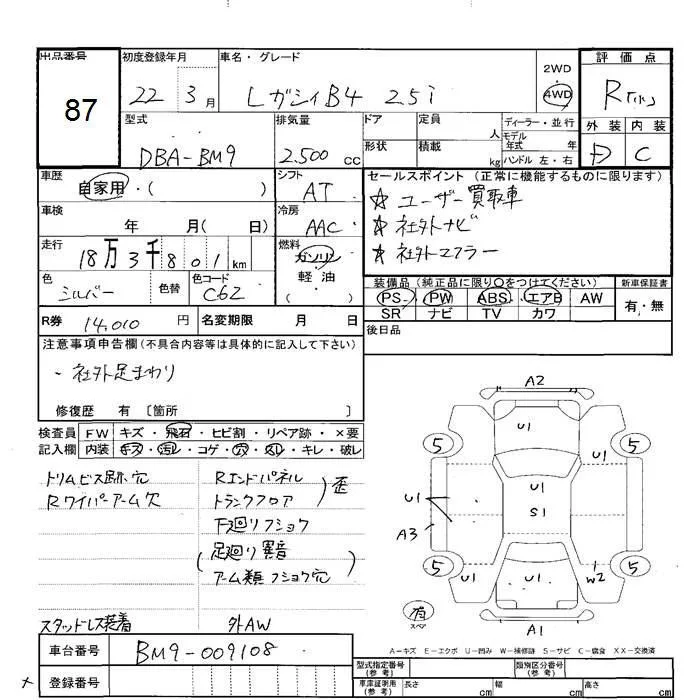 出品番号
87
初度登録年月
22 3 月
車名・グレード
レガシィB4 2.5i
2WD
4WD
評価点
R
外装 内装
D C
型式
DBA-BM9
排気量
2.500 cc
ドア
定員 人
形状
積載 kg
ディーラー・並行
モデル年式 年
ハンドル 左・右
車歴
自家用・( )
シフト
AT
セールスポイント (正常に機能するものに限ります)
☆ ユーザー買取車
☆ 社外ナビ
☆ 社外マフラー
車検
年 月( 日)
冷房
AAC
走行
18万3千801km
燃料
ガソリン
軽・油
( )
色
シルバー
色替
色コード
C6Z
装備品(純正品に限り○をつけてください)
新車保証書
PS PW ABS エアB AW
SR ナビ TV カワ
有・無
R券 14,010 円
名変期限 月 日
後日品
注意事項申告欄(不具合内容等は具体的に記入して下さい)
・社外足まわり
修復歴 有 〔箇所 〕
検査員記入欄
FW キズ・飛石・ヒビ割・リペア跡・×要
内装 キズ・汚レ・コゲ・穴・スレ・キレ・破レ
トリムビス跡穴
Rワイパーアーム欠
Rエンドパネル
トランクフロア
)歪
下廻りフショク
(足廻り異音
アーム類フショク穴)
スタッドレス装着
外AW
A2
U1
5 5
U1
U1
U1
S1
A3
5 5
U1
U1
W2
有
スペア
A1
A−キズ E−エクボ U−凹み W−補修跡 S−サビ C−腐食 XX−交換済
車台番号
BM9-009108
登録番号
型式指定番号(参考)
類別区分番号(参考)
車庫証明用(参考)
長さ cm
幅 cm
高さ cm